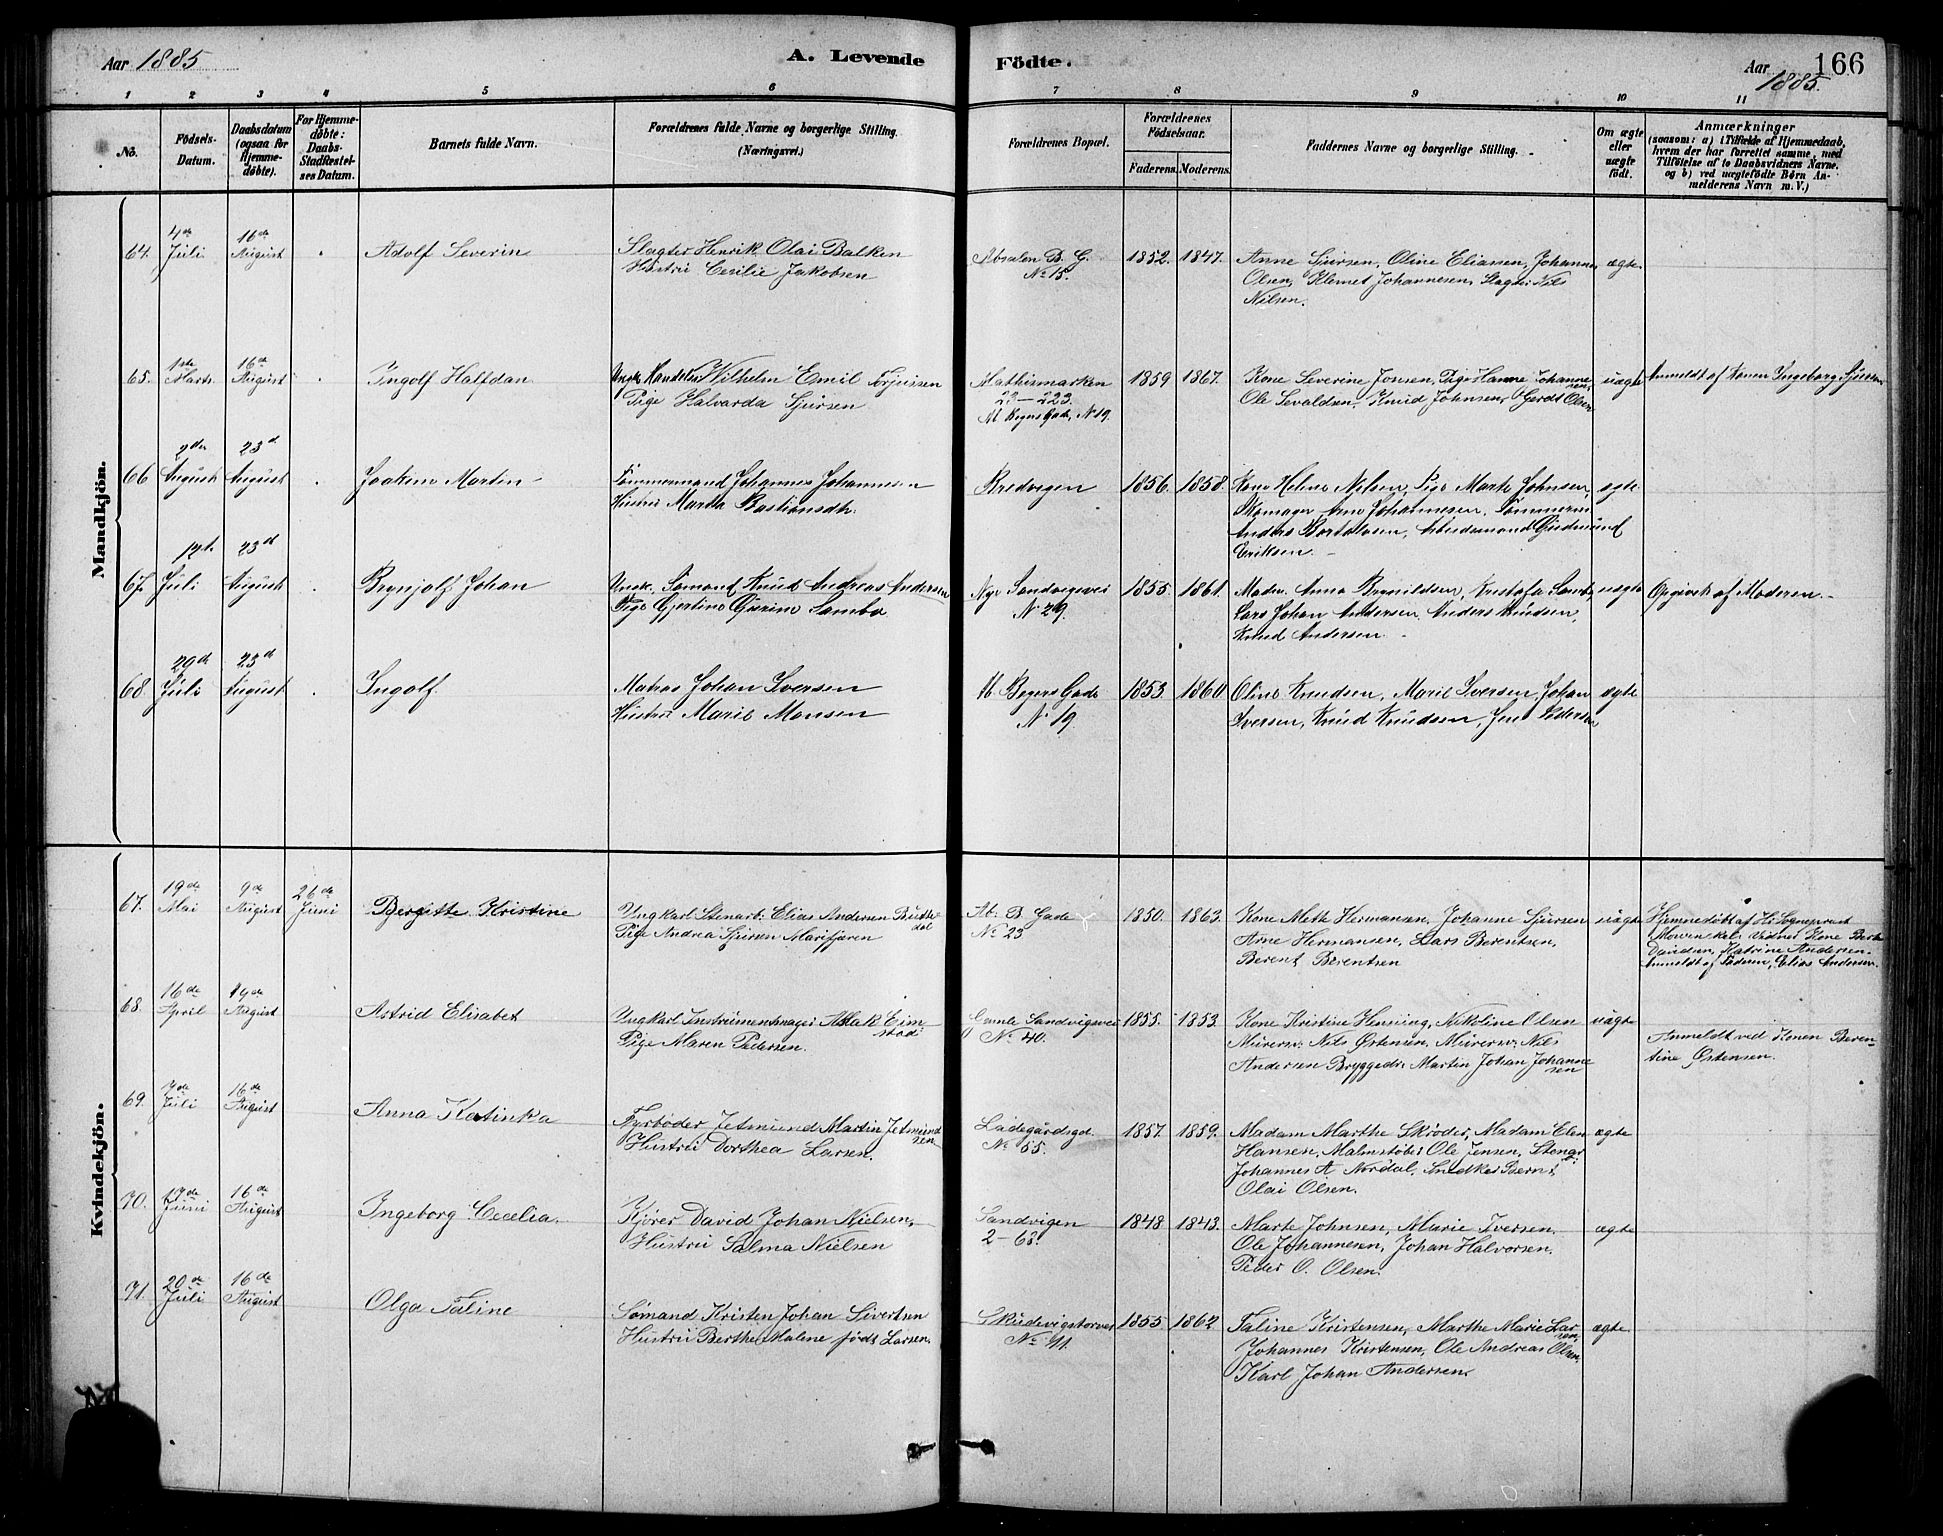 Aar 1885 A. Levende Födte. Aar 1885. 166
1 2 3 4 5 6 7 8 9 10 11
No. Födsels-Datum. Daabsdatum (ogsaa for Hjemmedöbte). For Hjemmedöbte: Daabs-Stadfæstelses Datum. Barnets fulde Navn. Forældrenes fulde Navne og borgerlige Stilling. (Næringsvei.) Forældrenes Bopæl. Forældrenes Födselsaar. Faderens. Moderens. Faddernes Navne og borgerlige Stilling. Om ægte eller uægte födt. Anmærkninger (saasom: a) i Tilfælde af Hjemmedaab, hvem der har forrettet samme, med Tilföielse af to Daabsvidners Navne, og b) ved uægtefödte Börn Anmelderens Navn m. V.)
Mandkjön.
64. 4de Juli 16de August Adolf Severin Slagter Henrik Olai Balken Absalon B. G. 1852. 1847. Anne Sjursen, Oline Eliassen, Johannes ægte
Hustru Cecilie Jakobsen No 15. Olsen, Klemet Johannesen, Slagter Nils
Nilsen.
65. 1ste Marts 16de August Ingolf Halfdan Ungk. Wilhelm Emil Torjusen Mathismarken 1859 1867. Kone Severine Jonsen, Pige Hanne Johannesen, uægte Anmeldt af Konen Ingeborg Sjursen
Pige Halvarda Sjursen 22-223. Ole Sevaldsen, Knud Johnsen, Gerdt Olsen
No 19.
66 2den August 23d August Joakim Martin Tømmermand Johannes Johannesen Bredvigen 1856. 1858. Kone Helene Nilsen, Pige Marte Johnsen, ægte
Hustru Martha Bastiansdtr. Skomager Arne Johannesen, Tømmerm.
Anders Bertelsen, Arbeidsmand Gudmund
Eriksen.
67. 12te Juli 23d August Brynjolf Johan Ungk. Sømand Knud Andreas Andersen Nye Sandvigsvei 1855. 1861. Madm. Anna Brynildsen, Kristofa Sambo, uægte Opgivet af Moderen.
Pige Gjertine Gurine Sambo No 29. Lars Johan Andersen, Anders Knudsen,
Knud Andersen.
68. 29de Juli 23d August Ingolf. Matros Johan Iversen M. Beyers Gade 1853 1860 Oline Knudsen, Marie Iversen, Johan ægte
Hustru Marie Monsen No 19 Iversen, Knud Knudsen, Jens Pedersen
Kvindekjön.
67. 19de Mai 9de August 26de Juni Bergitte Kristine Ungkarl Stenarb. Elias Andersen Ab. B. Gade 1850. 1863. Kone Mette Hermansen, Johanne Sjursen uægte Hjemmedøbt af Hr Sogneprest
Pige Andrea Sjursen Marifjæren No 23 Arne Hermansen, Lars Berentsen, Vidner Kone
Berent Berentsen Davidsen, Katrine Andersen.
Anmeldt af Faderen, Elias Andersen.
68. 16de April 19de August Astrid Elisabet Ungkarl Instrumentmager Aslak Eimstad Gamle Sandvigsvei 1855. 1853. Kone Kristine Henning, Nikoline Olsen uægte
Pige Maren Pedersen. No 40. Murersv. Nils Østensen, Murersv. Nils Anmeldt ved Konen Beren-
Andersen Bryggedr. Martin Johan Johannesen tine Østensen.
69. 7de Juli 16de August Anna Katinka Fyrbøder Jetmund Martin Jetmundsen Ladegårdsgd. 1857. 1859. Madam Marthe Skrøder, Madam Elen ægte
Hustru Dorthea Larsen. No 55. Hansen, Malmstøber Ole Jensen, Stenar.
Johannes A Nordal, Snedker Bernt
Olai Olsen.
70. 17de Juni 16de August Ingeborg Cecelia. Kjører David Johan Nielsen, Sandvigen 1848 1843. Marte Johnsen, Marie Iversen, ægte
Hustru Salma Nielsen 2-63. Ole Johannesen, Johan Halvorsen.
Peder O. Olsen.
71. 20de Juli 16de August Olga Taline Sømand Kristen Johan Sivertsen Skudevigstorvet 1855 1862 Taline Kristensen, Marthe Marie Larsen, ægte
Hustru Berthe Malene født Larsen. No 11. Johannes Kristensen, Ole Andreas Olsen,
Karl Johan Andersen.